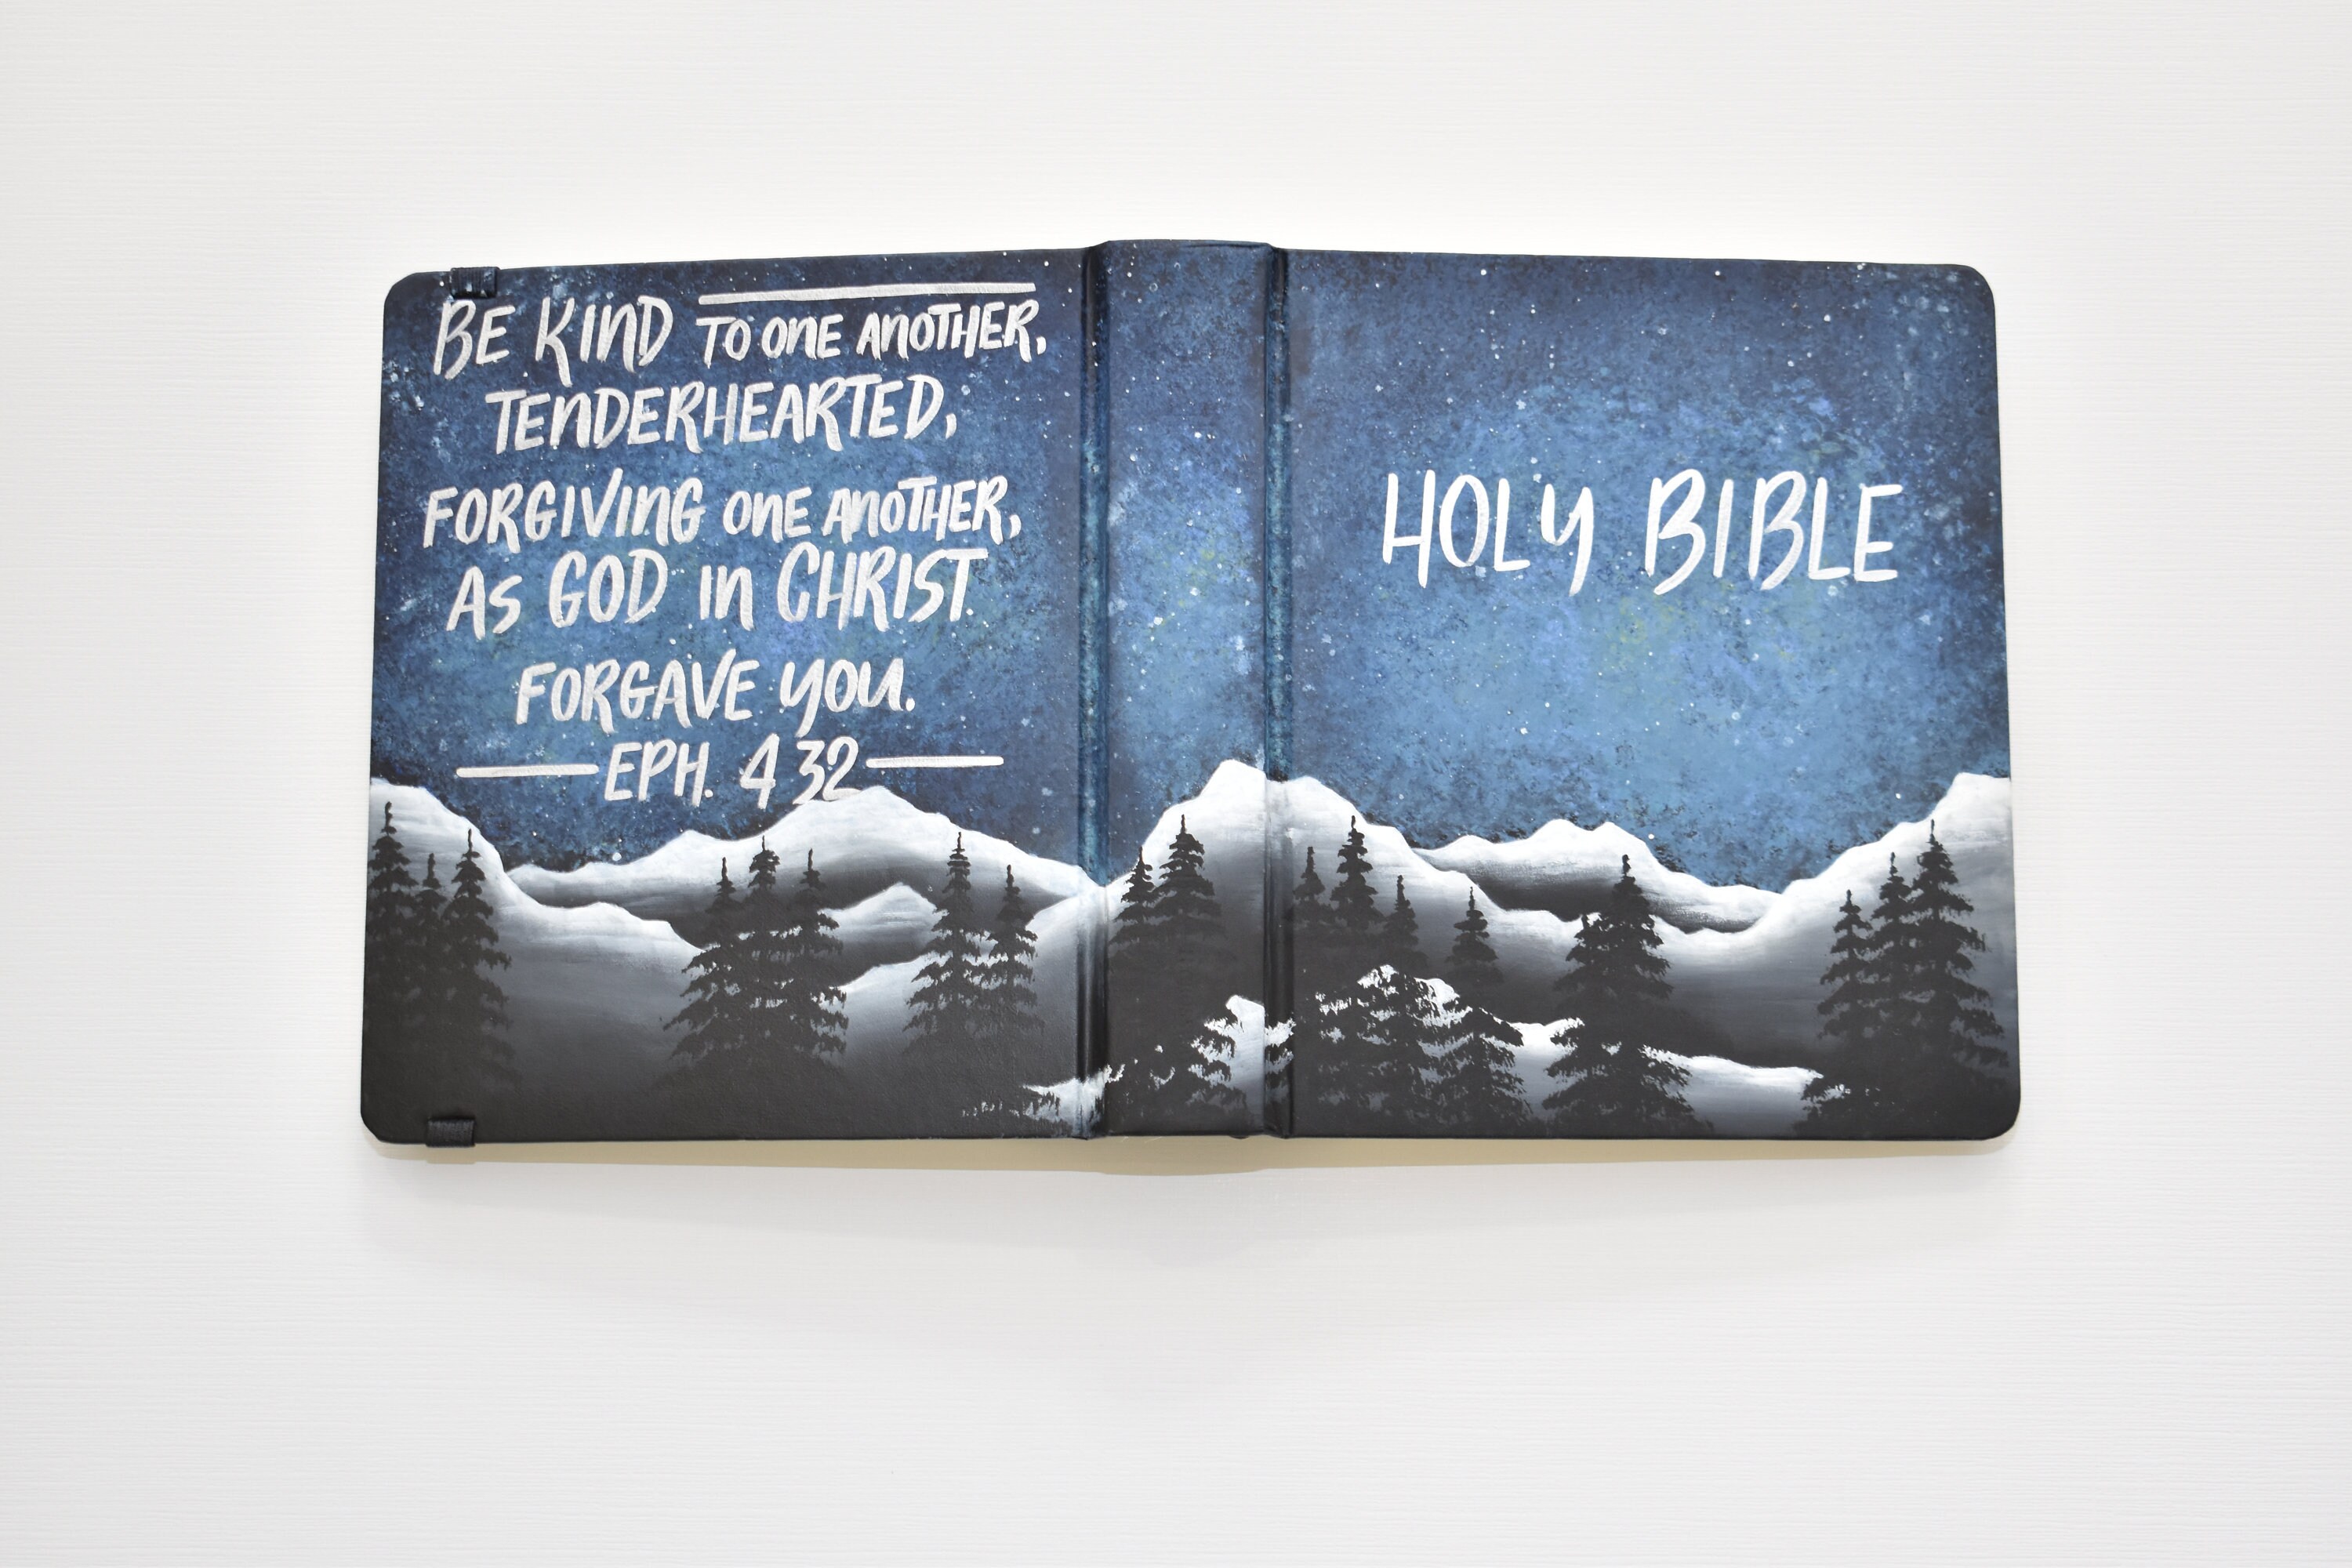 BE KIND TO ONE ANOTHER,
TENDERHEARTED,
FORGIVING ONE ANOTHER,
AS GOD IN CHRIST
FORGAVE YOU.
EPH. 4 32
HOLY BIBLE